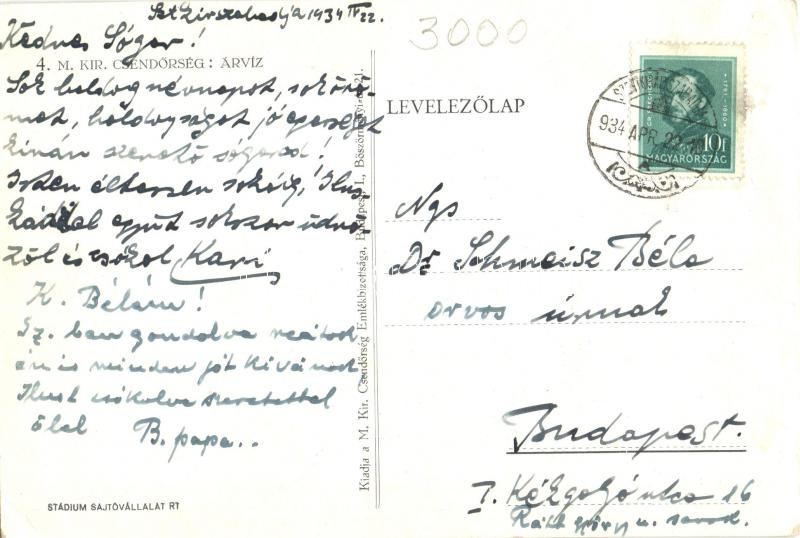 Szt Királyszabadja 1934 IV 22.
Kedves Sógor!
4. M. KIR. CSENDŐRSÉG: ÁRVÍZ
Sok boldog névnapot, sok örö-
met, boldogságot jó egészséget
kíván szerető sógorod!
Isten éltessen sokáig, Ilus-
kával együt sokszor üdvö-
zöl és csókol Kari
K. Bélám!
gondolva reátok
én is minden jót kívánok
Ilust csókolva szeretettel
ölel B. papa..
STÁDIUM SAJTÓVÁLLALAT RT
Kiadja a M. Kir. Csendőrség Emlékbizottsága, Budapest, I., Böszörményi-út 21.
3000
LEVELEZŐLAP
934 APR. 22
10f
MAGYARORSZÁG
Ngs
Dr Schmeisz Béla
orvos úrnak
Budapest.
I. Kékgolyó utca 16
Ráth György u. sarok.